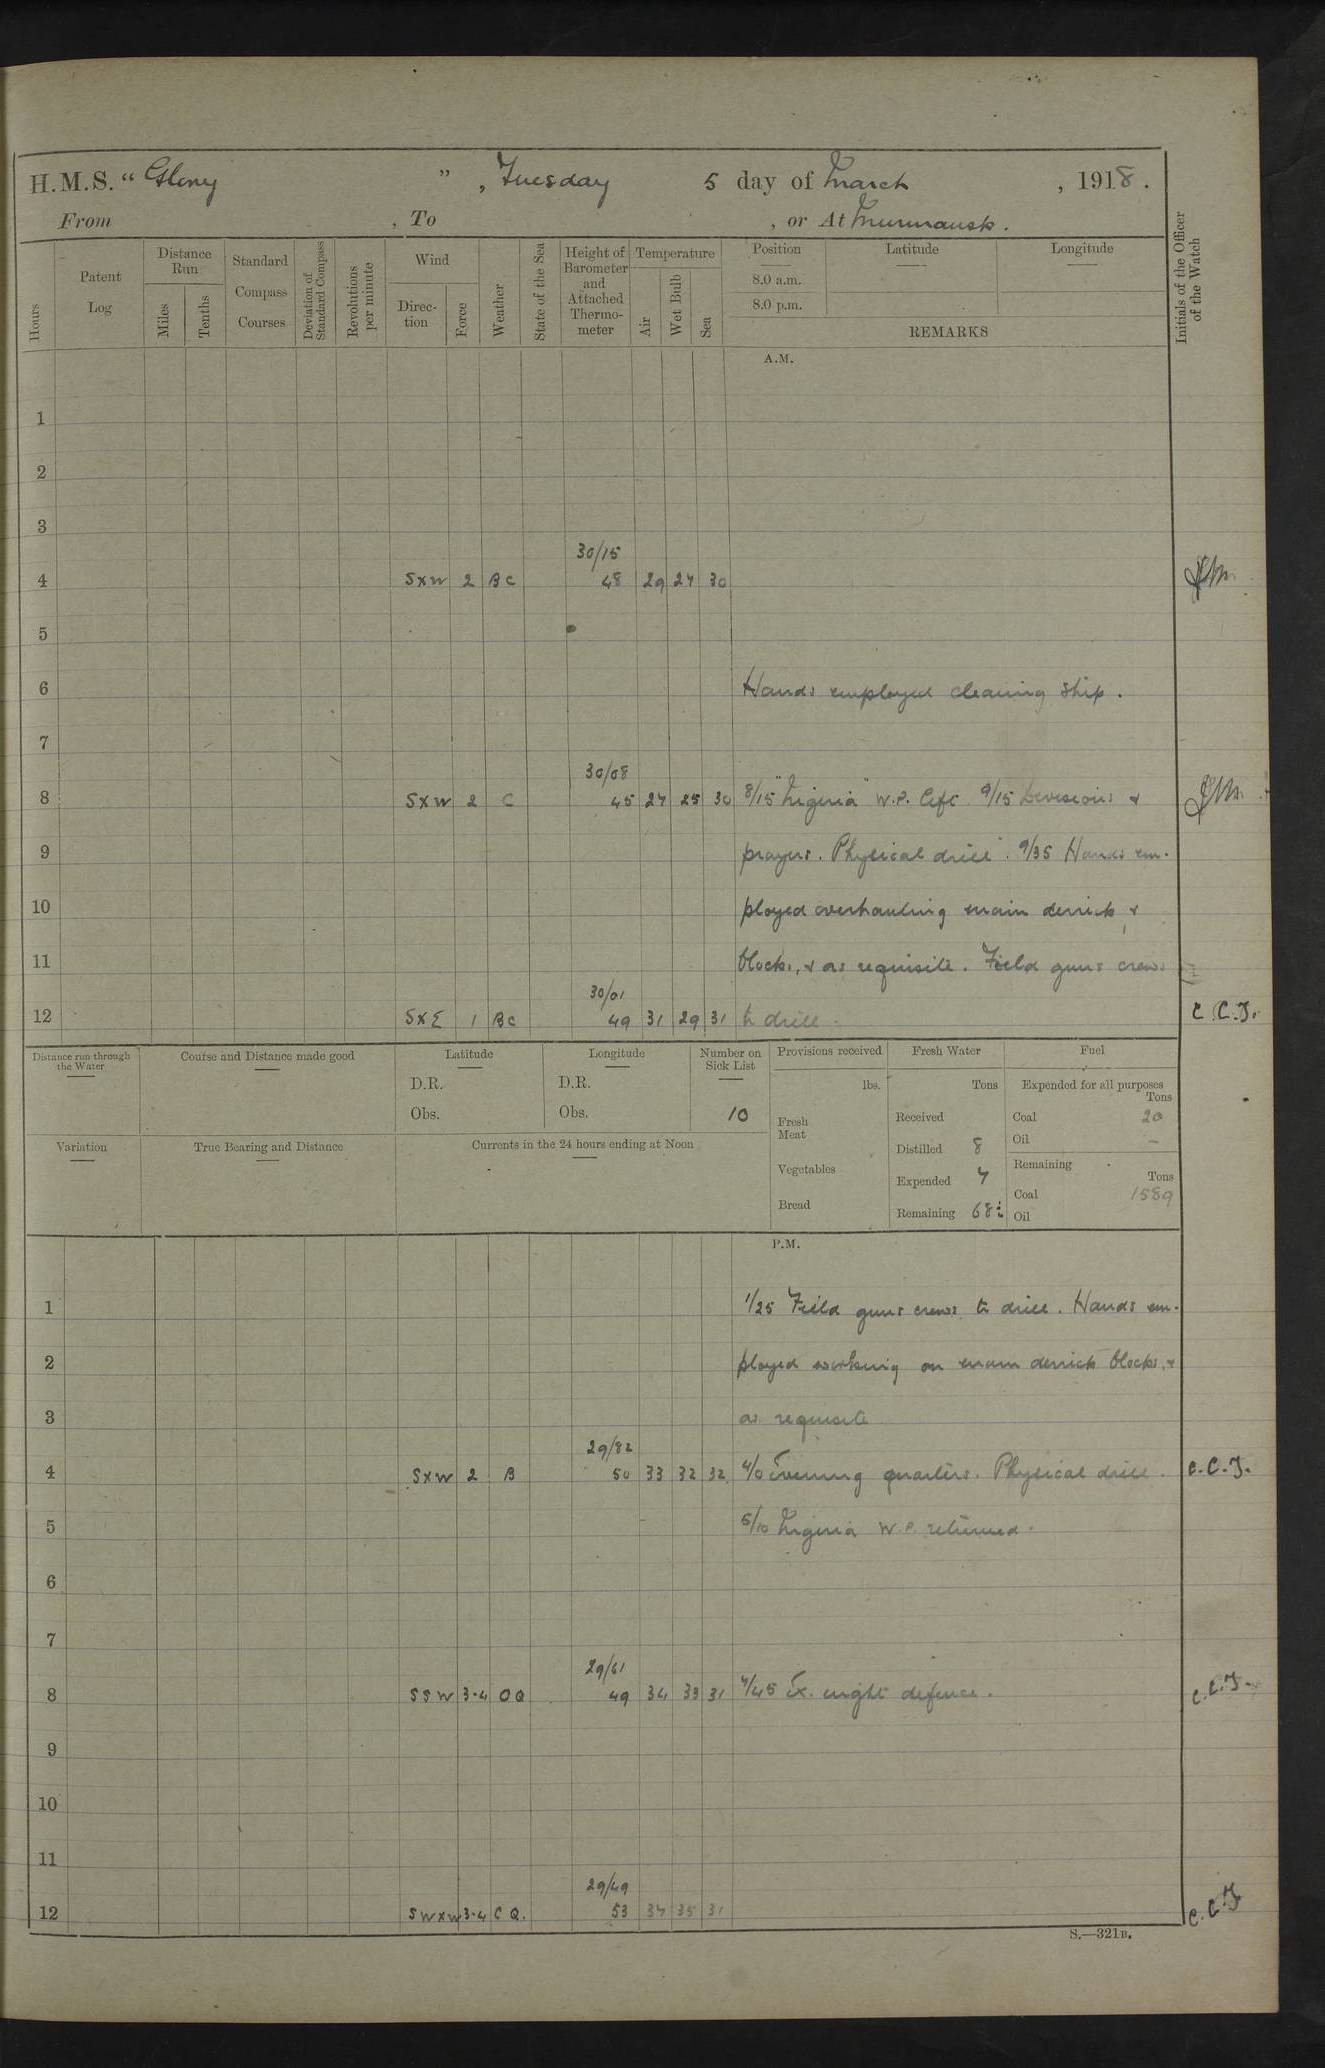 H.M.S. “ Glory ” , Tuesday 5 day of March , 1918 .
From , To , or At Murmansk .
Hours
Patent Log
Distance Run
Miles
Tenths
Standard Compass Courses
Deviation of Standard Compass
Revolutions per minute
Wind
Direc-tion
Force
Weather
State of the Sea
Height of Barometer and Attached Thermo-meter
Temperature
Air
Wet Bulb
Sea
Position
8.0 a.m.
8.0 p.m.
Latitude
Longitude
REMARKS
Initials of the Officer of the Watch
A.M.
1
2
3
30/15
4 S x W 2 BC 48 29 27 30
5
6 Hands employed cleaning ship .
7
30/08
8 S x W 2 C 45 27 25 30 8/15 "Nigeria" W.P. left 9/15 Divisions &
9 prayers . Physical drill . 9/35 Hands em-
10 ployed overhauling main derrick &
11 blocks, & as requisite . Field guns crews
30/01
12 S x E 1 BC 49 31 29 31 to drill . C.C.J.
Distance run through the Water
Course and Distance made good
Latitude
D.R.
Obs.
Longitude
D.R.
Obs.
Number on Sick List
10
Provisions received
lbs.
Fresh Meat
Vegetables
Bread
Fresh Water
Tons
Received
Distilled 8
Expended 7
Remaining
Fuel
Expended for all purposes
Tons
Coal 20
Oil –
Remaining
Tons
Coal 1589
Oil
Variation
True Bearing and Distance
Currents in the 24 hours ending at Noon
P.M.
1 1/25 Field guns crews to drill . Hands em-
2 ployed working on main derrick blocks, &
3 as requisite
29/82
4 S x W 2 B 50 33 32 32 4/0 Evening quarters . Physical drill . C.C.J.
5 5/10 Nigeria W.P. returned .
6
7
29/61
8 SSW 3-4 OQ 49 34 33 31 7/45 Ex. night defence . C.C.J.
9
10
11
29/49
12 SW x W 3-4 C Q. 53 37 35 31 C.C.J
S.—321B.